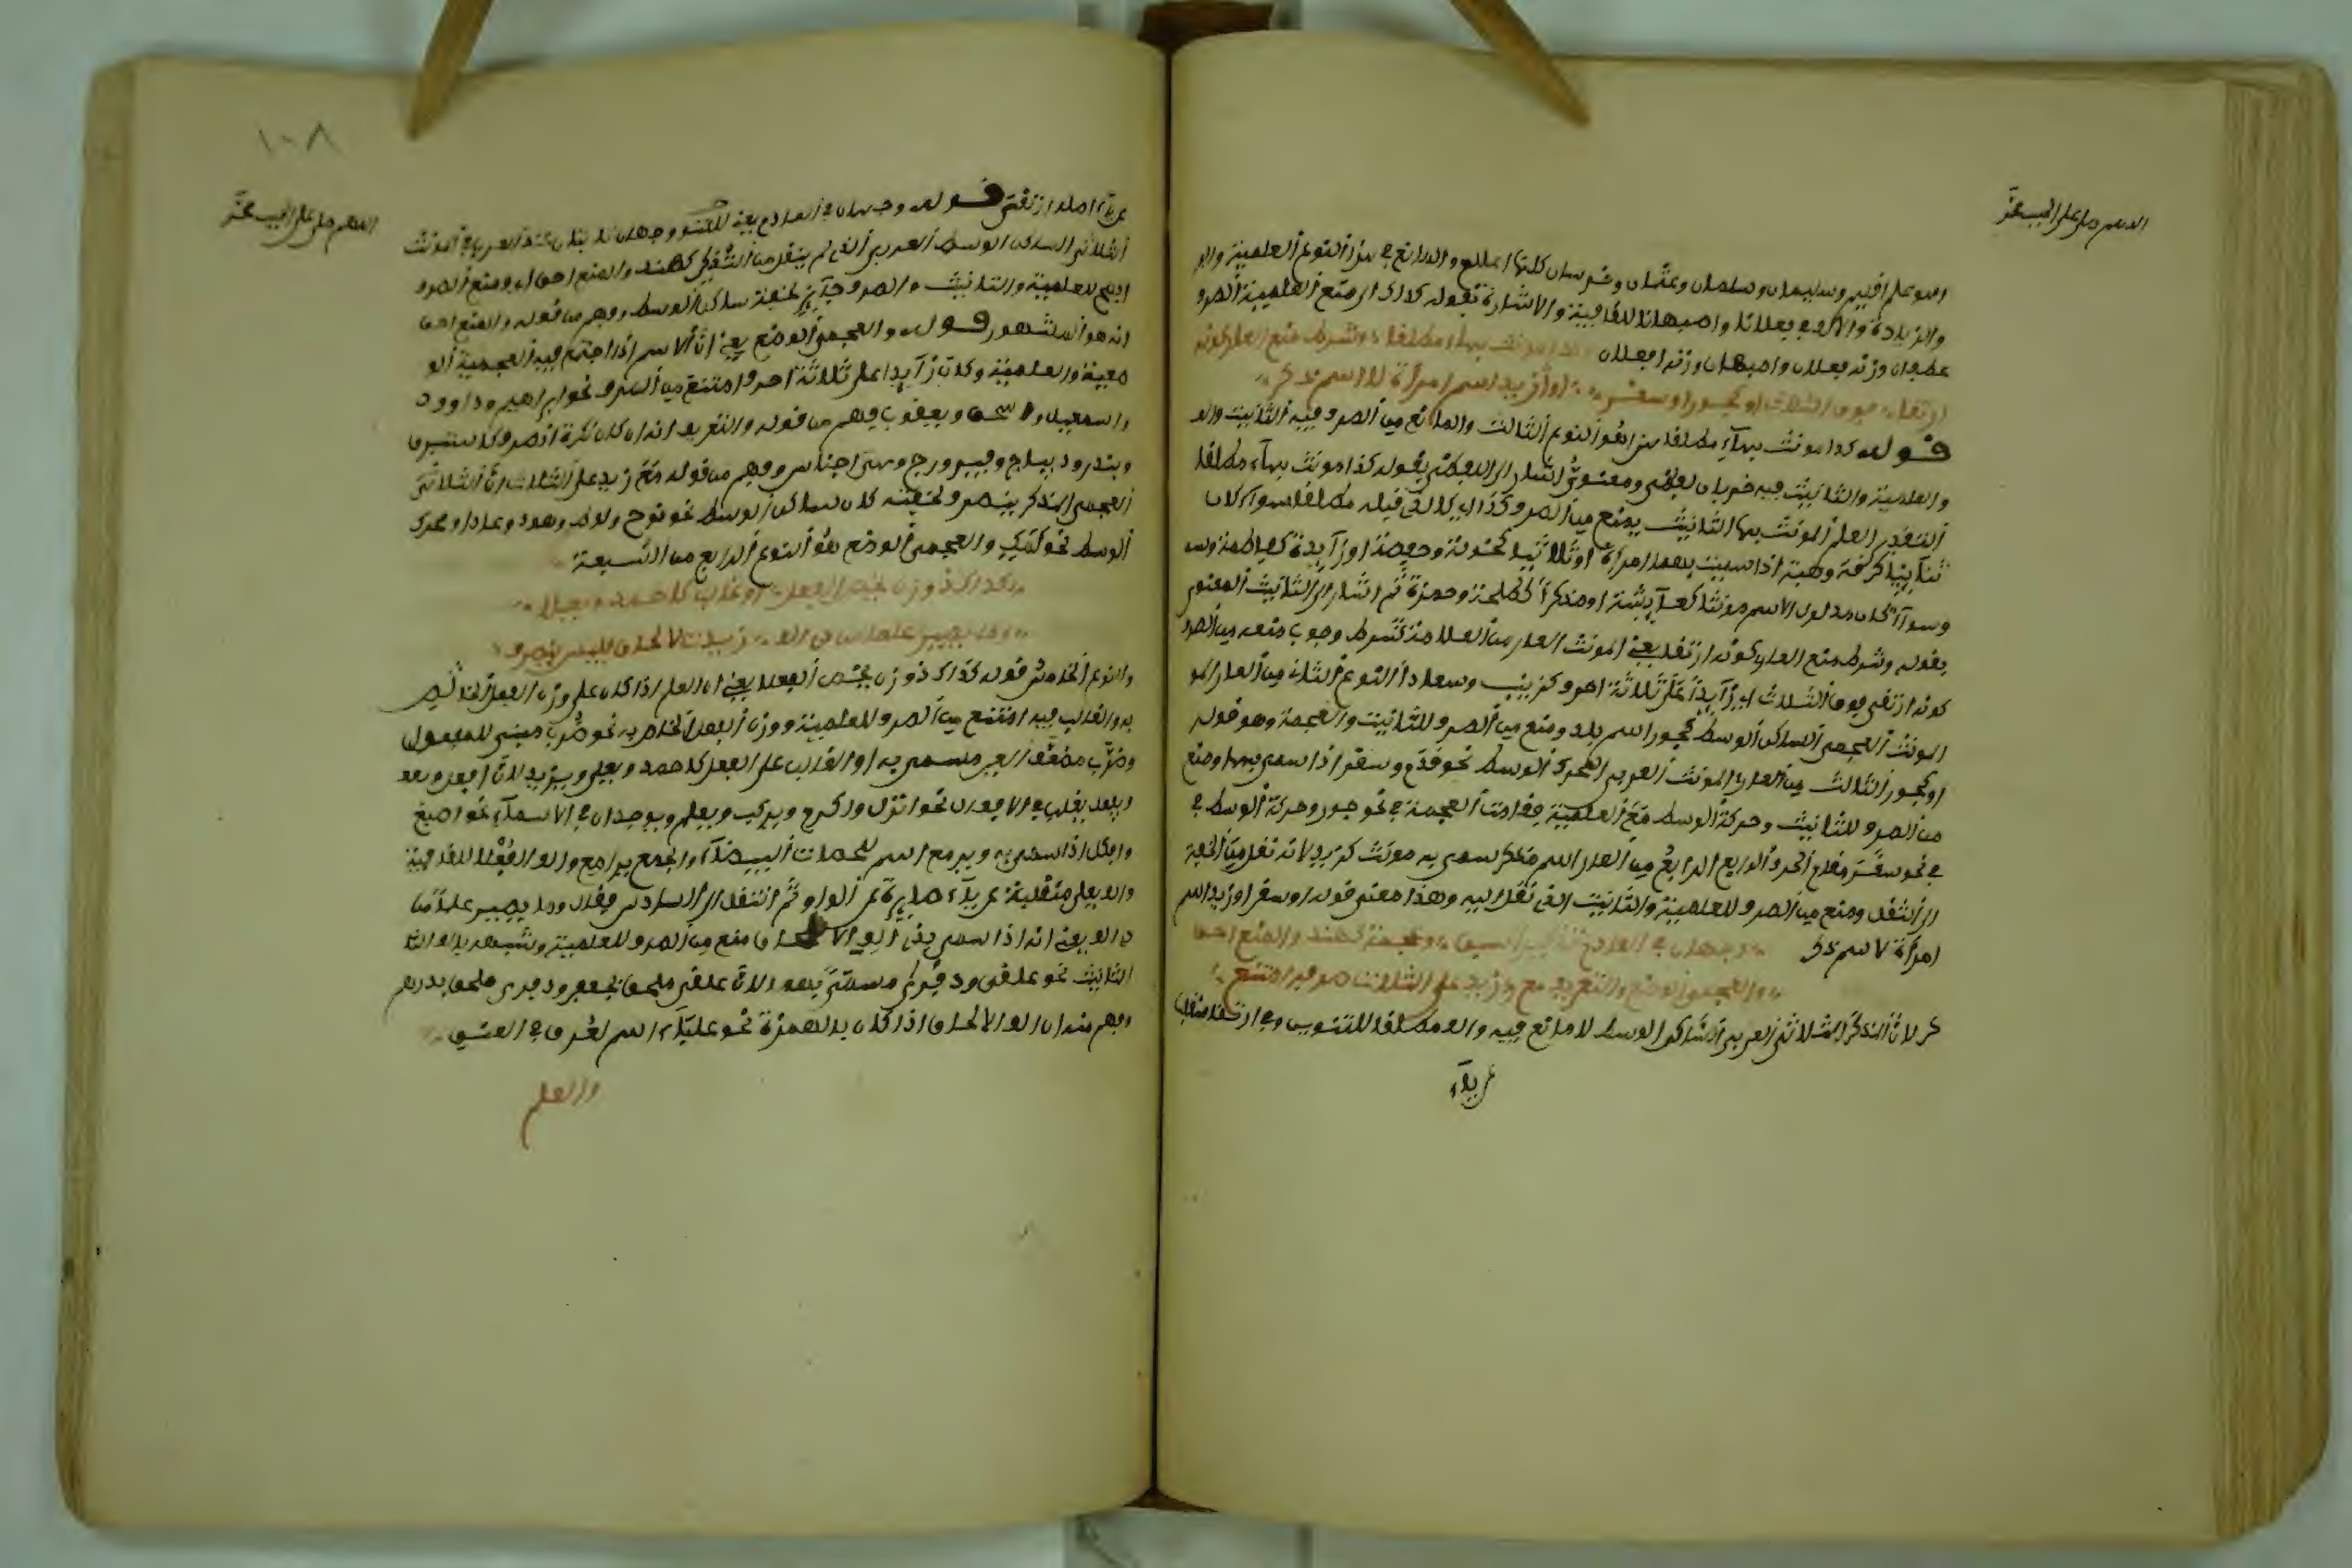 اللهم صل على الحبيب محمد
اسم علم اقليم وسليمان وسلمان وعثمان وخرسان كلها اعلام والمانع في هذا النوع العلمية والا
والزيادة والالف في فعلانا واصبهانا للقافية والاشارة بقوله كذاك الى منع العلمية الصرف
غطفان وزنه فعلان واصبهان وزنه افعلان كذا مونث بهاء مطلقا وشرط منع العار كونه
ارتقى فوق الثلاث او كجور او سقر او زيد اسم امراة لا اسم ذكر
قوله كذا مونث بهاء مطلقا هذا هو النوع الثالث والمانع من الصرف فيه التانيث وا
والعلمية والتانيث فيه ضربان لفظي ومعنوي اشار الى اللفظي بقوله كذا مونث بهاء مطلقا
التقدير العلم المونث بهاء التانيث يمنع من الصرف كذاك كالذي قبله مطلقا سواء كان
ثنائيا كرفة وهبة اذا سميت بهما امراة او ثلاثيا كخولة وحفصة او زايدة كفاطمة وس
وسواء كان مدلول الاسم مونثا كعائشة او مذكرا كطلحة وحمزة ثم اشار الى التانيث المعنوي
بقوله وشرط منع العار كونه ارتقى يعني المونث العار من العلامة شرط وجوب منعه من الصرف
كونه ارتقى فوق الثلاث اي زايدا على ثلاثة احرف كزينب وسعاد النوع الثاني من العار المو
المونث العجمي الساكن الوسط كجور اسم بلد ومنع من الصرف للتانيث والعجمة وهو قوله
او كجور الثالث من العار المونث العربي المحرك الوسط نحو قدم وسقر اذا سمي بهما ومنع
من الصرف للتانيث وحركة الوسط مع العلمية فقامت العجمة في نحو جور وحركة الوسط في
في نحو سقر مقام الحرف الرابع الرابع من العار اسم مذكر سمي به مونث كزيد لانه نقل من الخفة
الى الثقل ومنع من الصرف للعلمية والتانيث الذي نقل اليه وهذا معنى قوله او سقر او زيد اسم
امراة لا اسم ذكر وجهان في العادم تذكيرا سبق وعجمة كهند والمنع احق
والعجمي الوضع والتعريف مع زيد على الثلاث صرفه امتنع
كر لان المذكر الثلاثي العربي الساكن الوسط لا مانع فيه والف مطلقا للتنوين وفي ارتقا منقلب
عن ياء
١٠٨
اللهم صل على الحبيب محمد
عن ياء اصله ارتقى قوله وجهان في العادم يعني للمنع وجهان ثابتان عند العرب في المونث
الثلاثي الساكن الوسط العربي الذي لم ينقل من التذكير كهند والمنع احق اي ومنع الصرف
ارجح للعلمية والتانيث والصرف جايز لخفة ساكن الوسط وفهم من قوله والمنع احق
انه هو المشهور قوله والعجمي الوضع يعني ان الاسم اذا اجتمع فيه العجمية الو
ضعية والعلمية وكان زايدا على ثلاثة احرف امتنع من الصرف نحو ابراهيم وداوود
واسمعيل واسحق ويعقوب وفهم من قوله والتعريف انه ان كان نكرة انصرف كاستبرق
وبندر وديباج وفيروزج وهي اجناس وفهم من قوله مع زيد على الثلاث ان الثلاثي
العجمي المذكر ينصرف لخفته كان ساكن الوسط نحو نوح ولوط وهود وعاد او محرك
الوسط نحو لمك والعجمي الوضع هو النوع الرابع من السبعة
كذاك ذو وزن يخص الفعلا او غالب كاحمد ويعلى
وما يصير علما من ذي الف زيدت لالحاق فليس ينصرف
والنوع الخامس قوله كذاك ذو وزن يخص الفعلا يعني ان العلم اذا كان على وزن الفعل الخاص
به والغالب فيه امتنع من الصرف للعلمية ووزن الفعل الخاص به نحو ضرب مبني للمفعول
وضرب مضعف العين مسمى به او الغالب على الفعل كاحمد ويعلى ويزيد لان افعل وبعد
ويفعل يغلب في الافعال نحو انزل واكرم ويركب ويعلم ويوجدان في الاسماء نحو اصبع
وافكل اذا سمي به ويرمع اسم للحصات البيضاء والجمع يرامع والف الفعلا للقافية
والف يعلى منقلبة عن ياء صايرة عن الواو ثم انتقل الى السادس فقال وما يصير علما من
ذي الف يعني انه اذا سمي بذي الف الالحاق منع من الصرف للعلمية وشبهه بالف التا
التانيث نحو علقى وذفرى مسمى بهما لان علقى ملحق بجعفر وذفرى ملحق بدرهم
وفهم منه ان الف الالحاق اذا كان بالهمزة نحو علباء اسم لعرق في العنق
والعلم